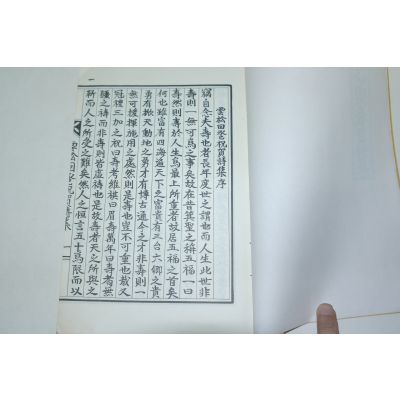 祝賀詩集序
竊自念夫壽也者長年度世之謂也而人生此世非
壽則一無可爲之事矣故在昔箕聖之稱五福一曰
壽然則壽於人生爲最上所重者故居五福之首矣
何也雖富有四海遍天下之富貴有三台六卿之貴
勇有掀天動地之勇才有博古通今之才非壽則一
無可援揮施用之處然則是壽也豈不可重也哉又
冠禮三加之祝曰壽考維祺曰眉壽萬年曰壽考無
疆之祷而非壽則皆虛待也是故壽者天之所與之
靳而人之所受之難矣然人之恒言五十爲限而以